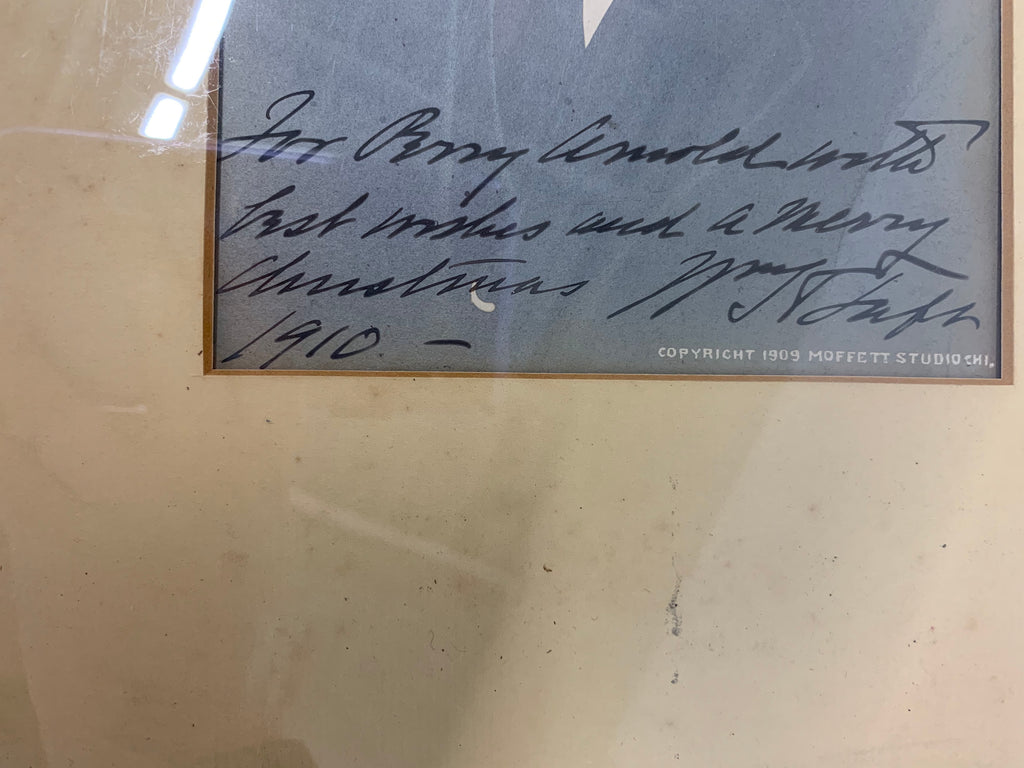 For Perry Arnold with
best wishes and a Merry
Christmas Wm H Taft
1910 —
COPYRIGHT 1909 MOFFETT STUDIO CHI.